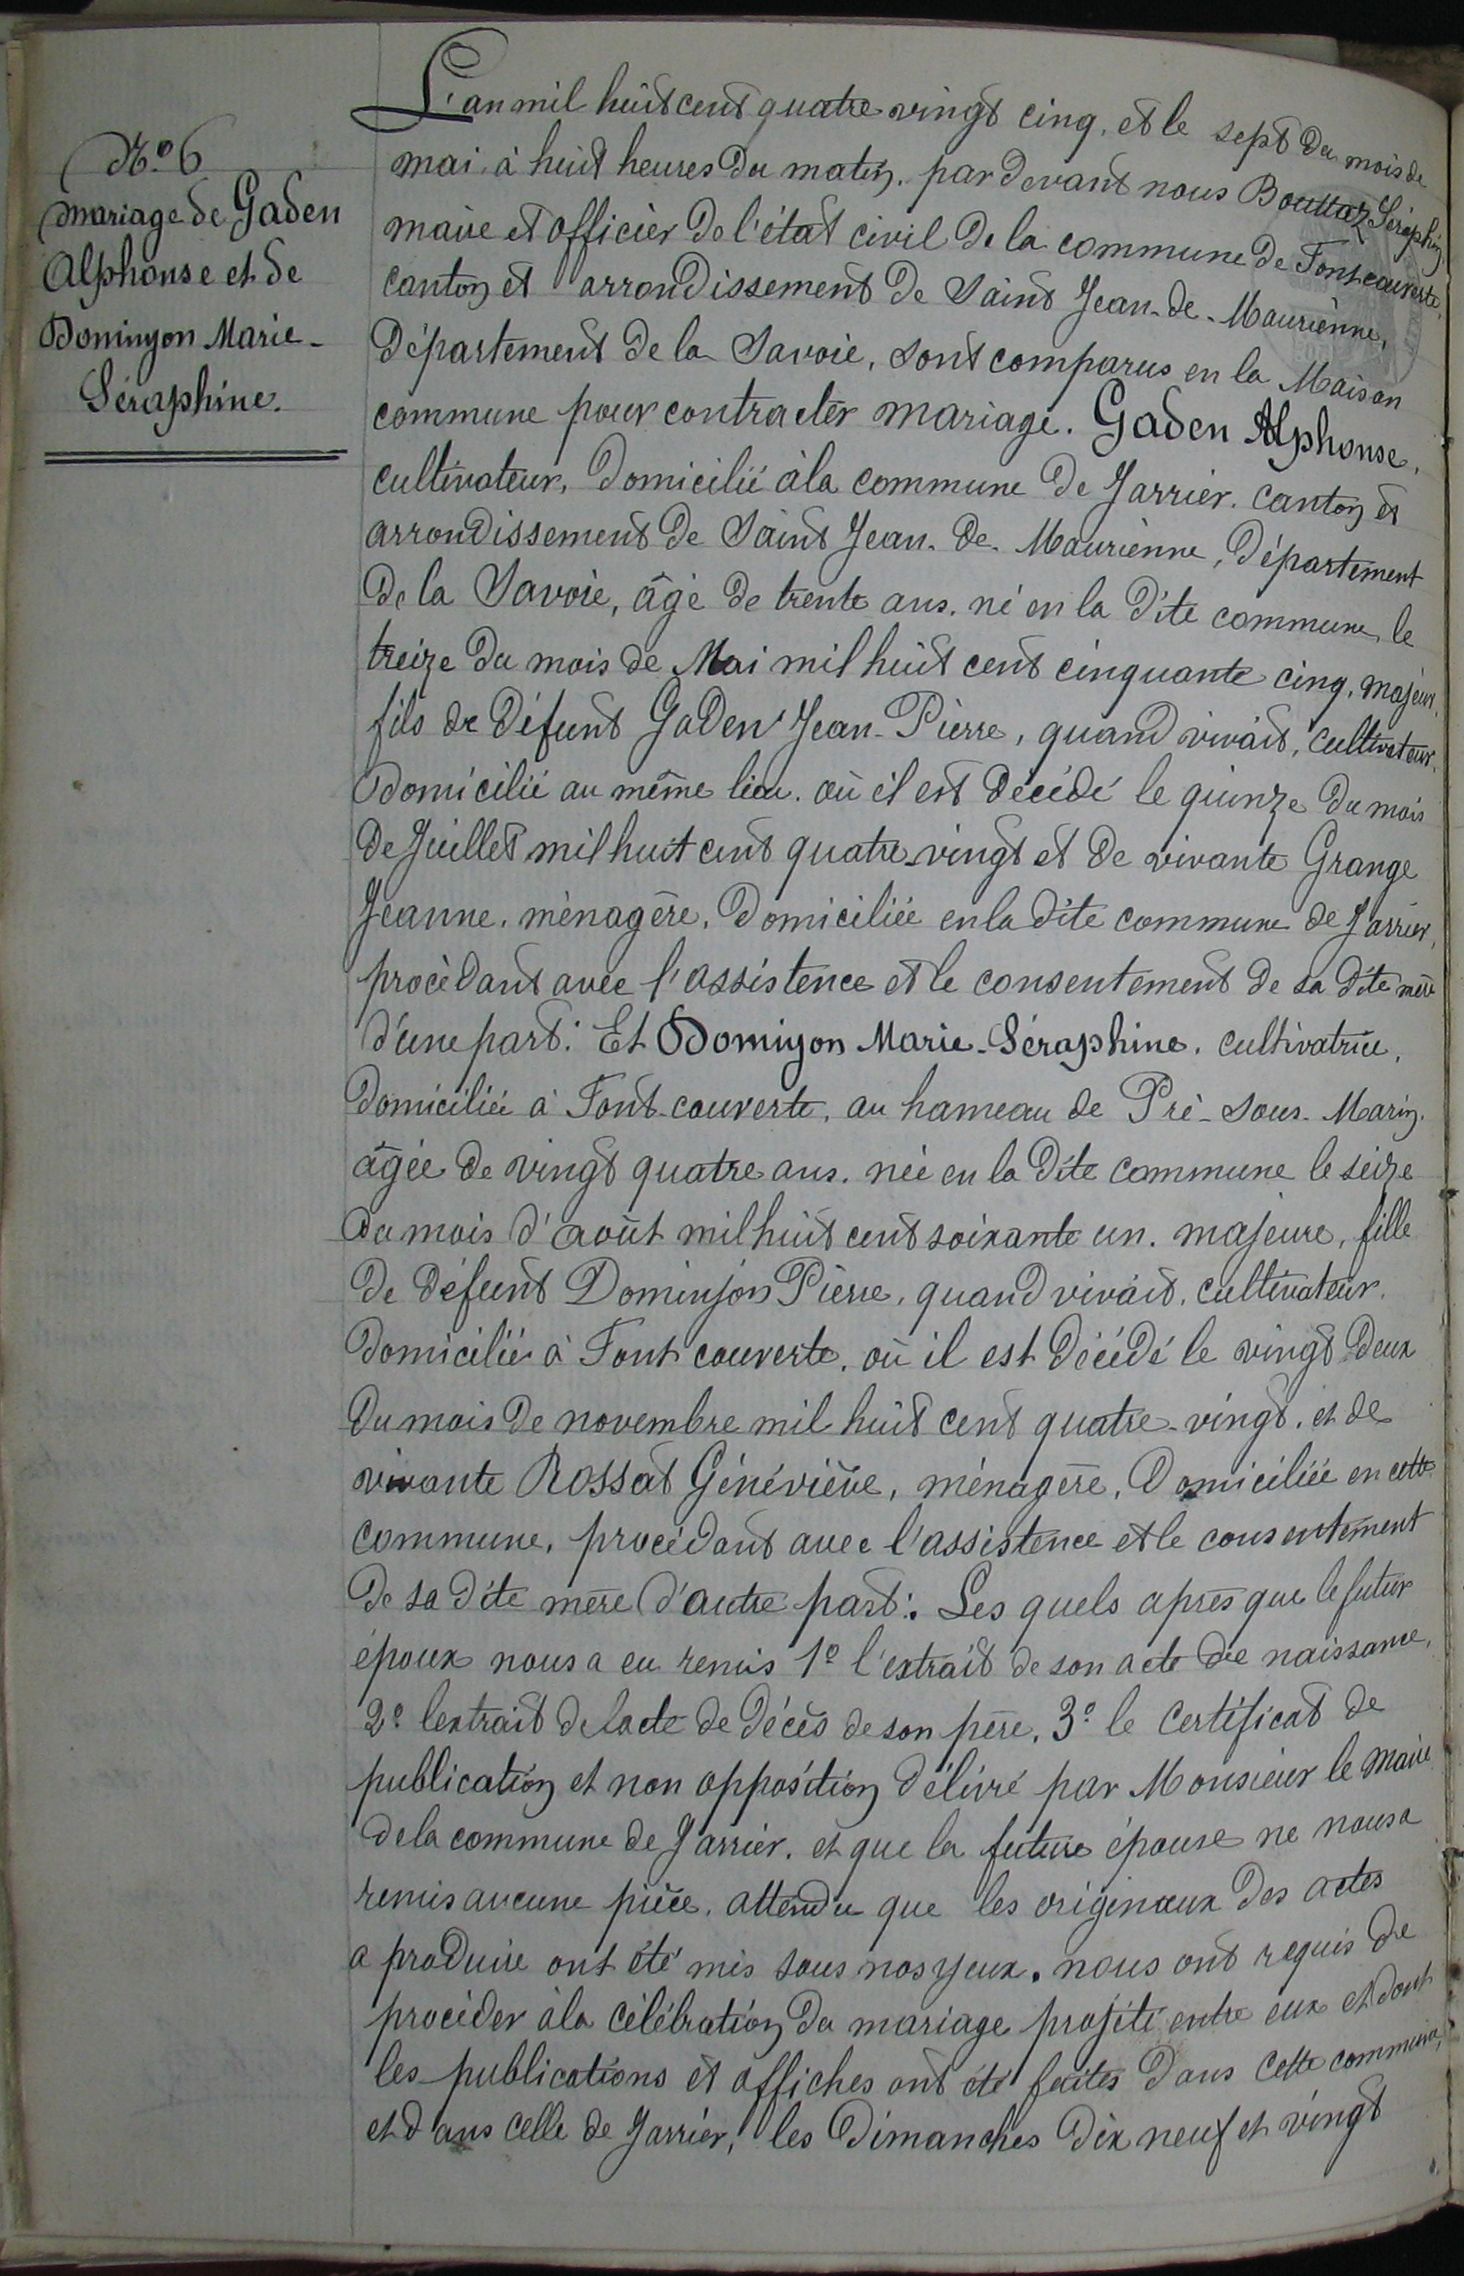 N.° 6
Mariage de Gaden
Alphonse et de
Dominjon Marie-
Séraphine.
L'an mil huit cent quatre vingt cinq, et le sept du mois de
mai, à huit heures du matin, par devant nous Bouttaz Séraphin,
maire et officier de l'état civil de la commune de Fontcouverte,
canton et arrondissement de Saint Jean-de-Maurienne,
Département de la Savoie, sont comparus en la Maison
commune pour contracter mariage. Gaden Alphonse,
cultivateur, domicilié à la commune de Jarrier, canton et
arrondissement de Saint Jean-de-Maurienne, département
de la Savoie, âgé de trente ans, né en la dite commune, le
treize du mois de Mai mil huit cent cinquante cinq, majeur,
fils de défunt Gaden Jean-Pierre, quand vivait, cultivateur,
domicilié au même lieu, où il est décédé le quinze du mois
de Juillet mil huit cent quatre-vingt et de vivante Grange
Jeanne, ménagère, domiciliée en la dite commune de Jarrier,
procédant avec l'assistence et le consentement de sa dite mère
d'une part: Et Domijon Marie-Séraphine, cultivatrice,
domiciliée à Font-couverte, au hameau de Pré-Sous-Marin,
âgée de vingt quatre ans, née en la dite commune le seize
du mois d'août mil huit cent soixante un, majeure, fille
de défunt Dominjon Pierre, quand vivait, cultivateur,
domicilié à Font couverte, où il est décédé le vingt deux
du mois de novembre mil huit cent quatre-vingt, et de
vivante Rossat Généviève, ménagère, domiciliée en cette
commune, procédant avec l'assistence et le consentement
de sa dite mère d'autre part: Les quels après que le futur
époux nous a eu remis 1° l'extrait de son acte de naissance,
2° l'extrait de l'acte de décès de son père, 3° le certificat de
publication et non opposition délivré par Monsieur le Maire
de la commune de Jarrier, et que la future épouse ne nous a
remis aucune pièce, attendu que les originaux des actes
a produire ont été mis sous nos yeux, nous ont requis de
procéder à la célébration du mariage projeté entre eux et dont
les publications et affiches ont été faites dans cette commune,
et dans celle de Jarrier, les dimanches dix neuf et vingt